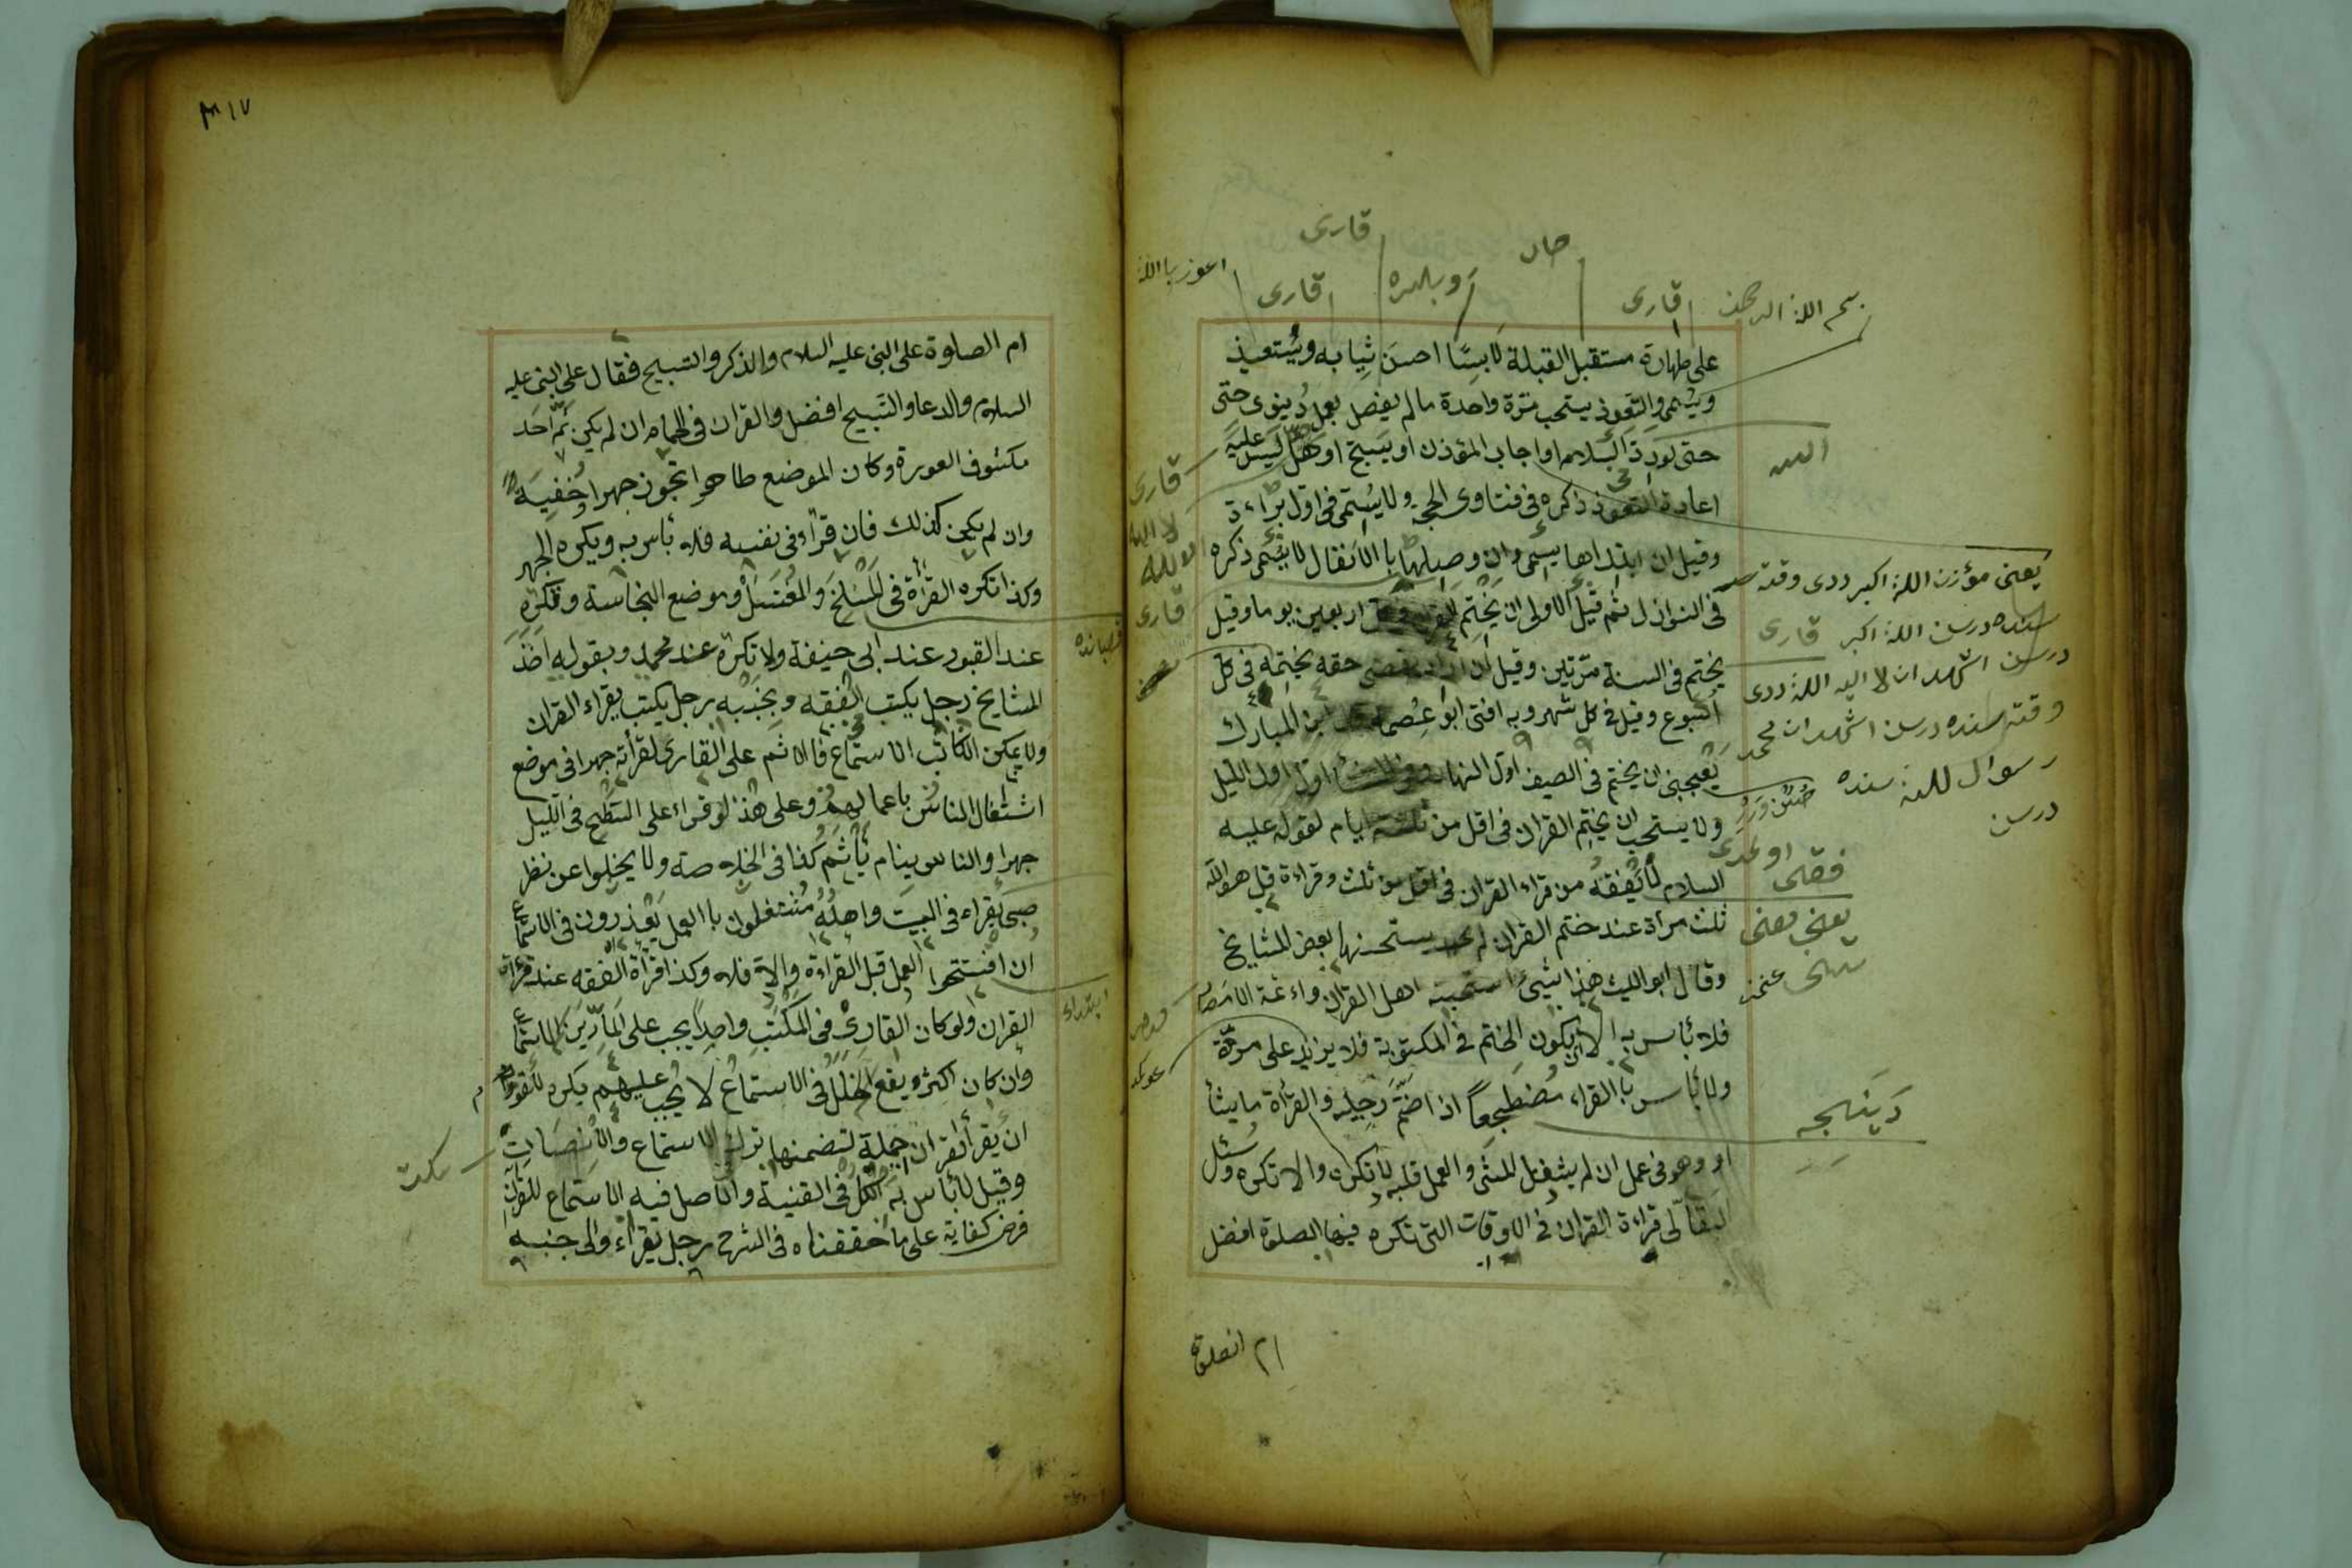 على طهارة مستقبل القبلة لابسًا احسن ثيابه ويستعيذ
ويسمى والتعوذ يستحب مرّة واحدة مالم يفصل بعمل دنيوى حتى
حتى لورد السلام او اجاب المؤذن او يسبح او هلل ليس عليه
اعادة التعوذ ذكره فى فتاوى الحجة ولا يسمى فى اول براءة
وقيل ان ابتداها يسمى وان وصلها با الانفال لا يسمى ذكره
فى النوازل ثم قيل الاولى ان يختم القران اربعين يوما وقيل
يختم فى السنة مرّتين وقيل ان حقه يختمه فى كل
اسبوع وقيل فى كل شهر وبه افتى ابو عصمة ابن المبارك
يعجبنى ان يختم فى الصيف اول النهار اول الليل
ولا يستحب ان يختم القران فى اقل من ثلثة ايام لقوله عليه
السلام لا يفقه من قراء القران فى اقل من ثلث وقراءة قل هو الله
ثلث مرأة عند ختم القران لم يستحسنها بعض المشايخ
وقال ابو الليث هذا شيئ استحبته اهل القران واءئمة الامصار
فلا بأس به الا ان يكون الختم فى المكتوبة فلا يزيد على مرّة
ولا بأس با القراء مضطجعاً اذا ضمّ رجليه والقرأة ماشياً
او وهو فى عمل ان لم يشغل المشى والعمل قلبه لا تكره والا تكره وسئل
البقالى قراءة القران فى الاوقات التى تكره فيها الصلوة افضل
ام الصلوة
بسم الله الرحمن
قارى
قارى
قارى
اعوز باالله
يعنى مؤزن الله اكبر ددى وقته
سنده درسن الله اكبر قارى
درسن اشهد ان لا اله الله ددى
وقته سنده درسن اشهد ان محمد
رسوال لله سنده
درسن
يعنى
قارى
قارى
٣١٧
ام الصلوة على النبى عليه السلام والذكر والتسبيح فقال على النبى عليه
السلام والدعا والتسبيح افضل والقران فى الحمام ان لم يكن ثمّ احد
مكشوف العورة وكان الموضع طاهرا تجوز جهرا وخفية
وان لم يكن كذلك فان قراء فى نفسه فلا بأس به ويكره الجهر
وكذا تكره القرأة فى المسلخ والمغتسل وموضع النجاسة وتكره
عند القبور عند ابى حنيفة ولا تكره عند محمد وبقوله اخذ
المشايخ رجل يكتب الفقه وبجنبه رجل يكتب يقراء القران
ولا يمكن الكاتب الاستماع فالاثم على القارى لقرأته جهرا فى موضع
اشتغال الناس باعمالهم وعلى هذا لو قراء على السطح فى الليل
جهرا والناس ينام يأثم كذا فى الخلاصة ولا يخلوا عن نظر
صبى يقراء فى البيت واهله مشتغلون با العمل يعذرون فى الاستماع
ان افتتحوا العمل قبل القراءة والا فلا وكذا قرأة الفقه عند قرأة
القران ولو كان القارى فى المكتب واحدا يجب على المارّين الاستماع
وان كان اكثر ويقع الخلل فى الاستماع لا يجب عليهم يكره للقوم
ان يقرأ القران جملة لتضمنها ترك الاستماع والانصات
وقيل لا بأس به الكل فى القنية والاصل فيه الاستماع للقران
فرض كفاية على ما حققناه فى الشرح رجل يقراء والى جنبه
سكت